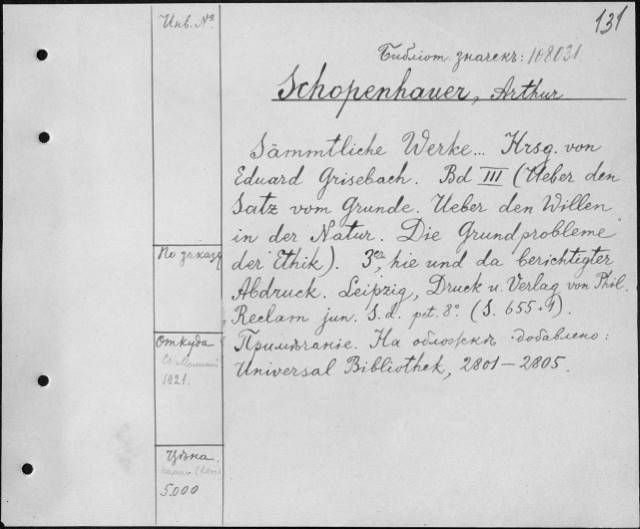 131
Инв. №
Библіот. значекъ: 108031
Schopenhauer, Arthur
Sämmtliche Werke... Hrsg. von
Eduard Grisebach. Bd III (Ueber den
Satz vom Grunde. Ueber den Willen
in der Natur. Die Grundprobleme
der Ethik). 3er, hie und da berichtigter
Abdruck. Leipzig, Druck u. Verlag von Phil.
Reclam jun. S. d. pet. 8°. (S. 655+1).
Примѣчаніе. На обложкѣ добавлено:
Universal Bibliothek, 2801–2805.
По заказу
Откуда
1921.
Цѣна
5.000